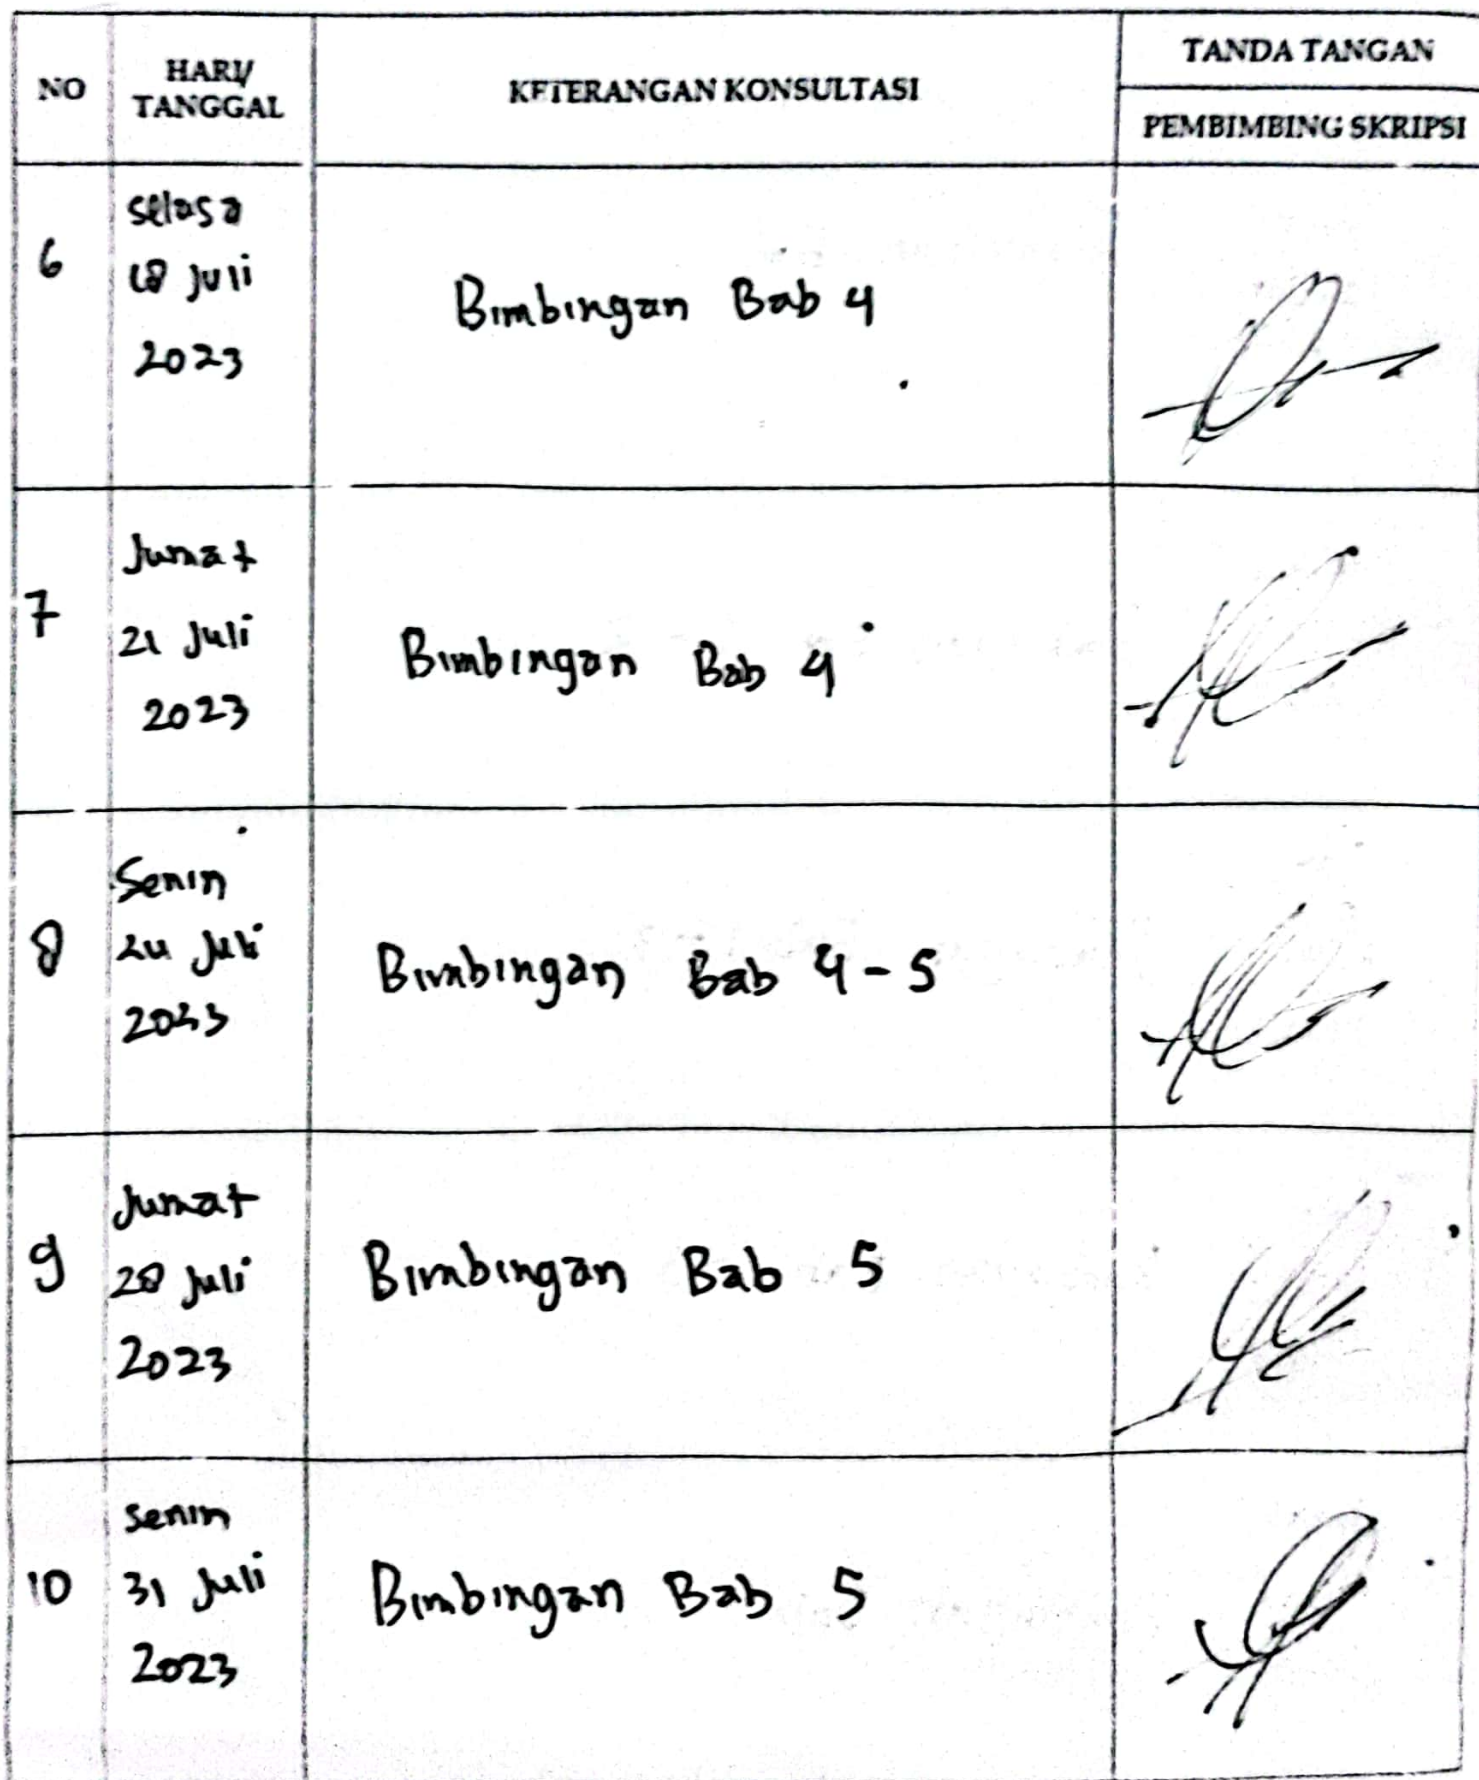 NO
HARI/
TANGGAL
KETERANGAN KONSULTASI
TANDA TANGAN
PEMBIMBING SKRIPSI
6
selasa
18 Juli
2023
Bimbingan Bab 4
7
Jumat
21 Juli
2023
Bimbingan Bab 4
8
Senin
24 Juli
2023
Bimbingan Bab 4-5
9
Jumat
28 Juli
2023
Bimbingan Bab 5
10
Senin
31 Juli
2023
Bimbingan Bab 5